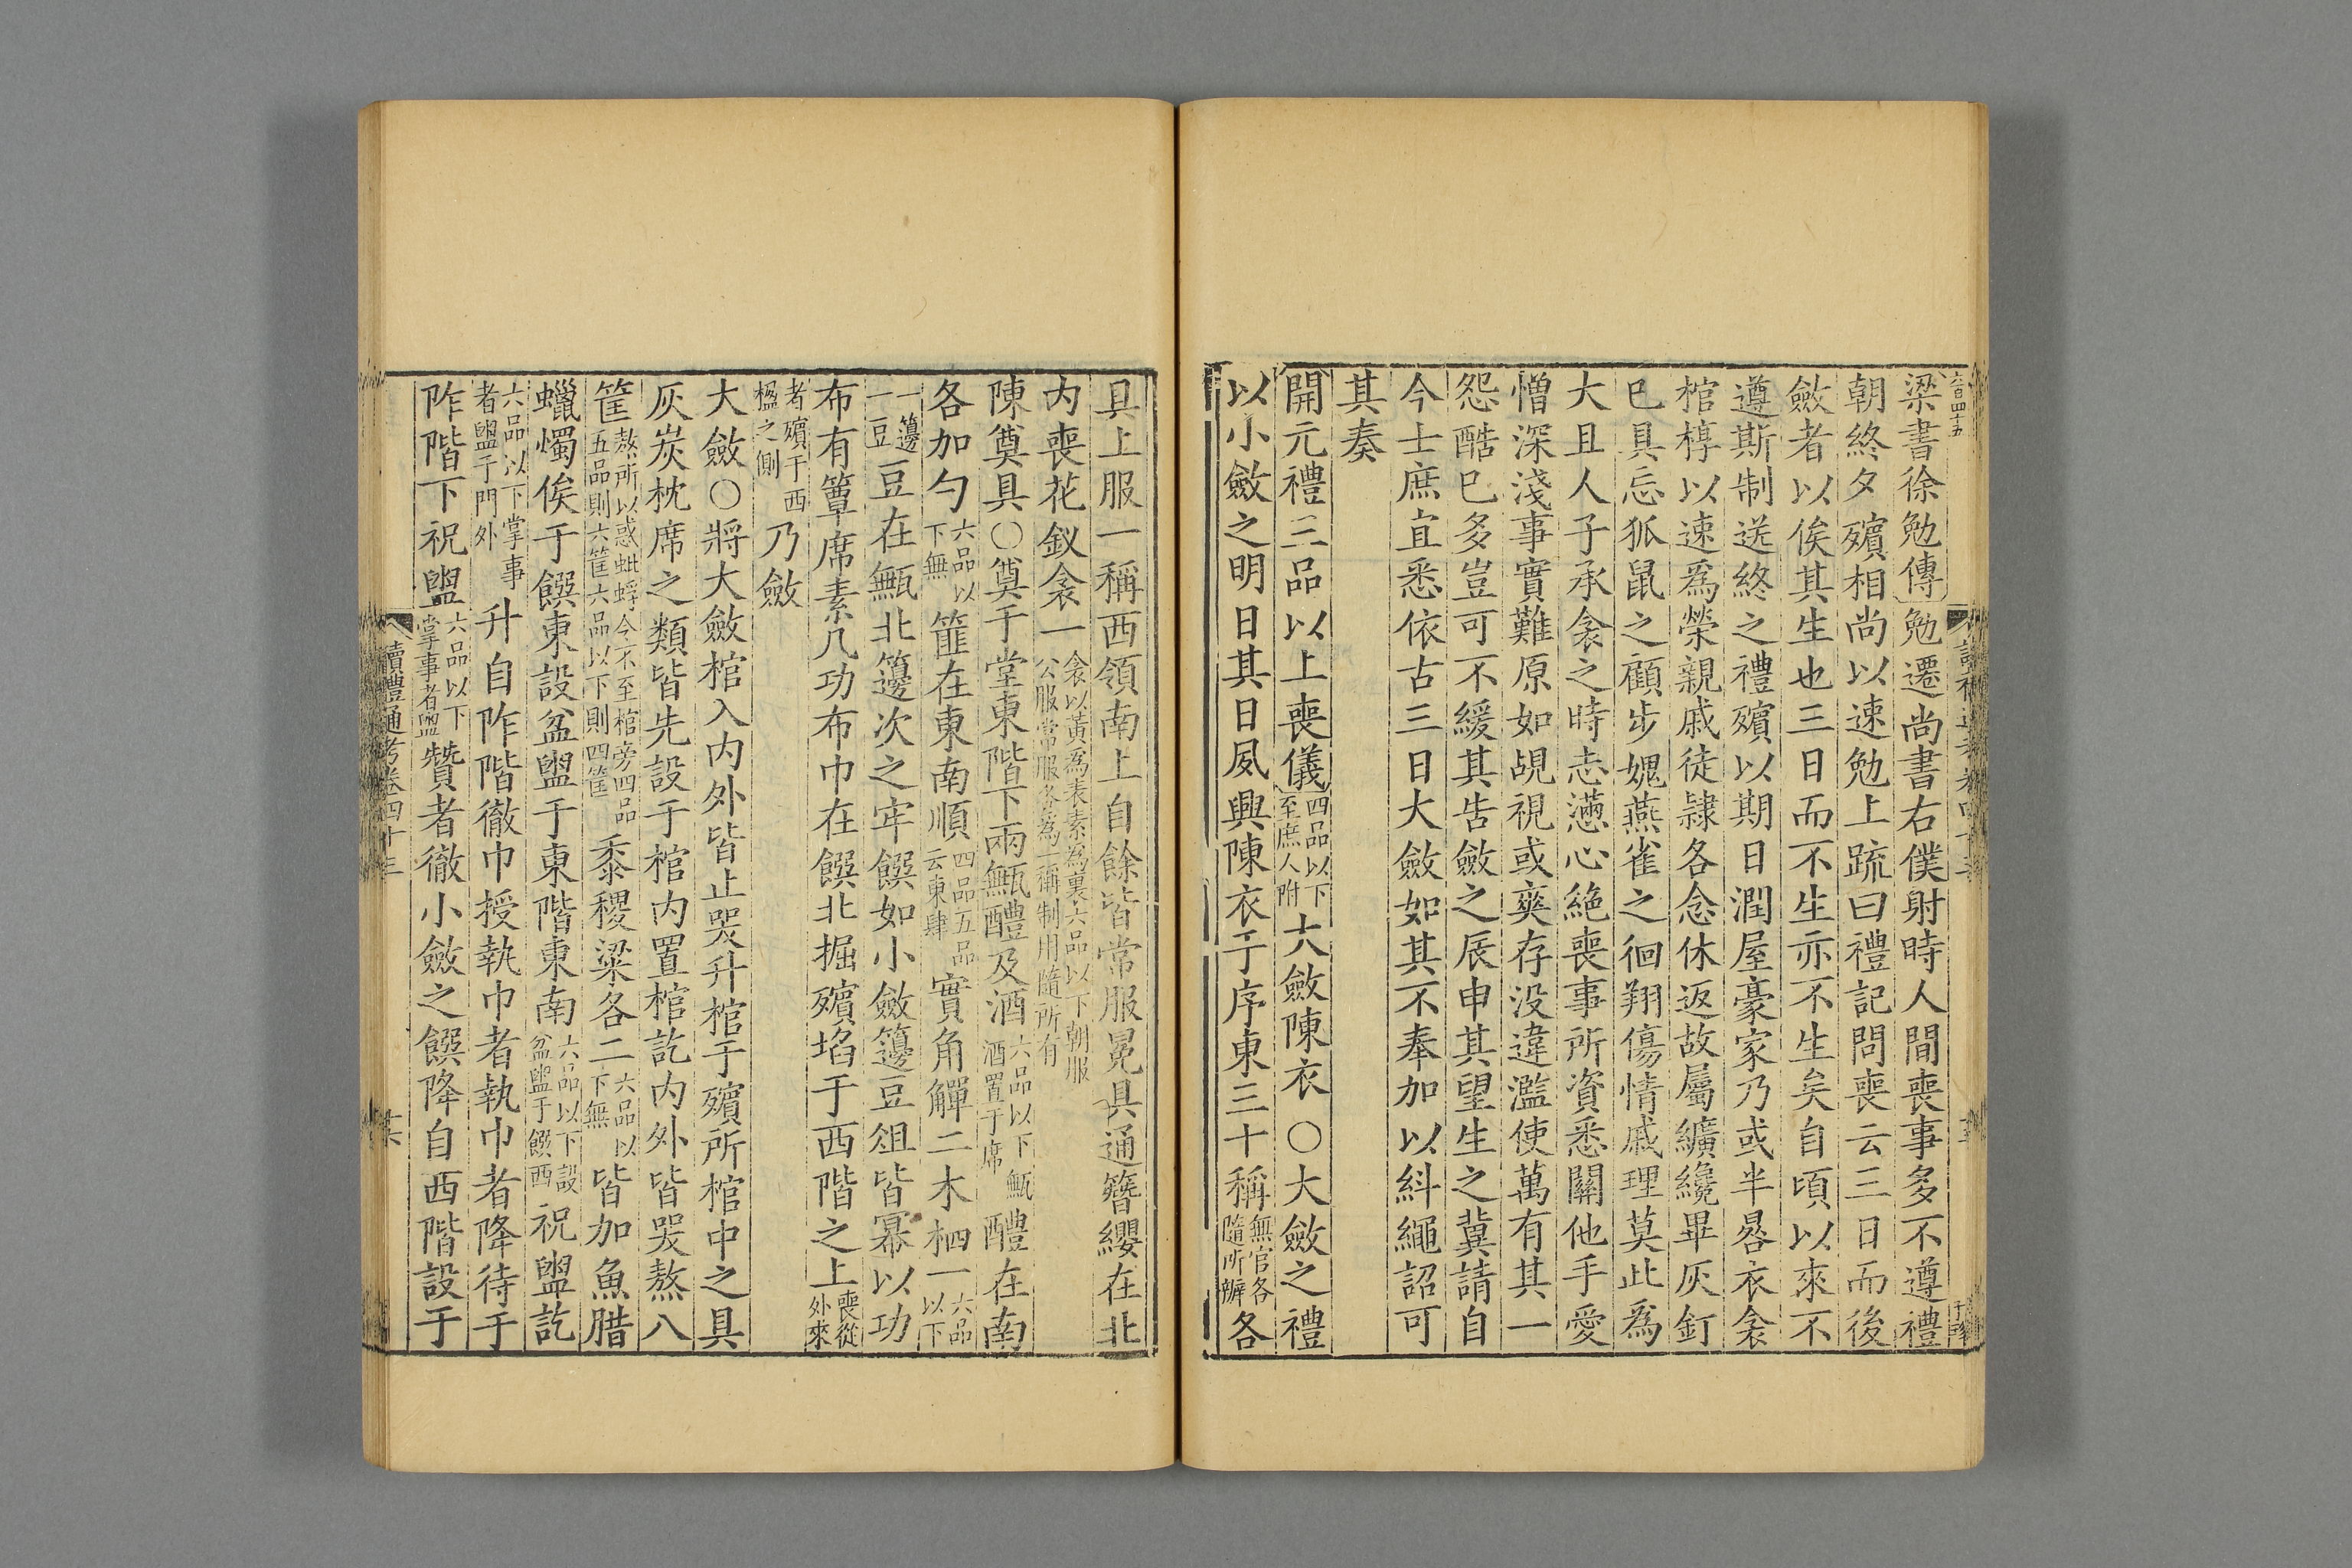 梁書徐勉傳勉遷尚書右僕射時人間喪事多不遵禮
朝終夕殯相尚以速勉上疏曰禮記問喪云三日而後
斂者以俟其生也三日而不生亦不生矣自頃以來不
遵斯制送終之禮殯以期日潤屋豪家乃或半晷衣衾
棺椁以速爲榮親戚徒隸各念休返故屬纊纔畢灰釘
已具忘狐鼠之顧步媿燕雀之徊翔傷情戚理莫此爲
大且人子承衾之時志懣心絶喪事所資悉關他手愛
憎深淺事實難原如覘視或爽存没違濫使萬有其一
怨酷已多豈可不緩其告斂之辰申其望生之冀請自
今士庶宜悉依古三日大斂如其不奉加以糾繩詔可
其奏
開元禮三品以上喪儀四品以下至庶人附大斂陳衣 〇大斂之禮
以小斂之明日其日夙興陳衣于序東三十稱無官各隨所辦各
具上服一稱西領南上自餘皆常服冕具通簪纓在北
内喪花釵衾一衾以黄爲表素爲裏六品以下朝服公服常服各爲一稱制用隨所有
陳奠具〇奠于堂東階下兩甒醴及酒六品以下甒酒置于席醴在南
各加勺六品以下無篚在東南順四品五品云東肆實角觶二木柶一六品以下
一籩一豆豆在甒北籩次之牢饌如小斂籩豆俎皆冪以功
布有簟席素几功布巾在饌北掘殯埳于西階之上喪從外來
者殯于西楹之側乃斂
大斂〇將大斂棺入内外皆止哭升棺于殯所棺中之具
灰炭枕席之類皆先設于棺内置棺訖内外皆哭熬八
筐熬所以惑蚍蜉今不至棺旁四品五品則六筐六品以下則四筐黍稷粱各二六品以下無皆加魚腊
蠟燭俟于饌東設盆盥于東階東南六品以下設盆盥于饌西祝盥訖
六品以下掌事者盥于門外升自阼階徹巾授執巾者執巾者降待于
阼階下祝盥六品以下掌事者盥贊者徹小斂之饌降自西階設于
讀禮通考卷四十三